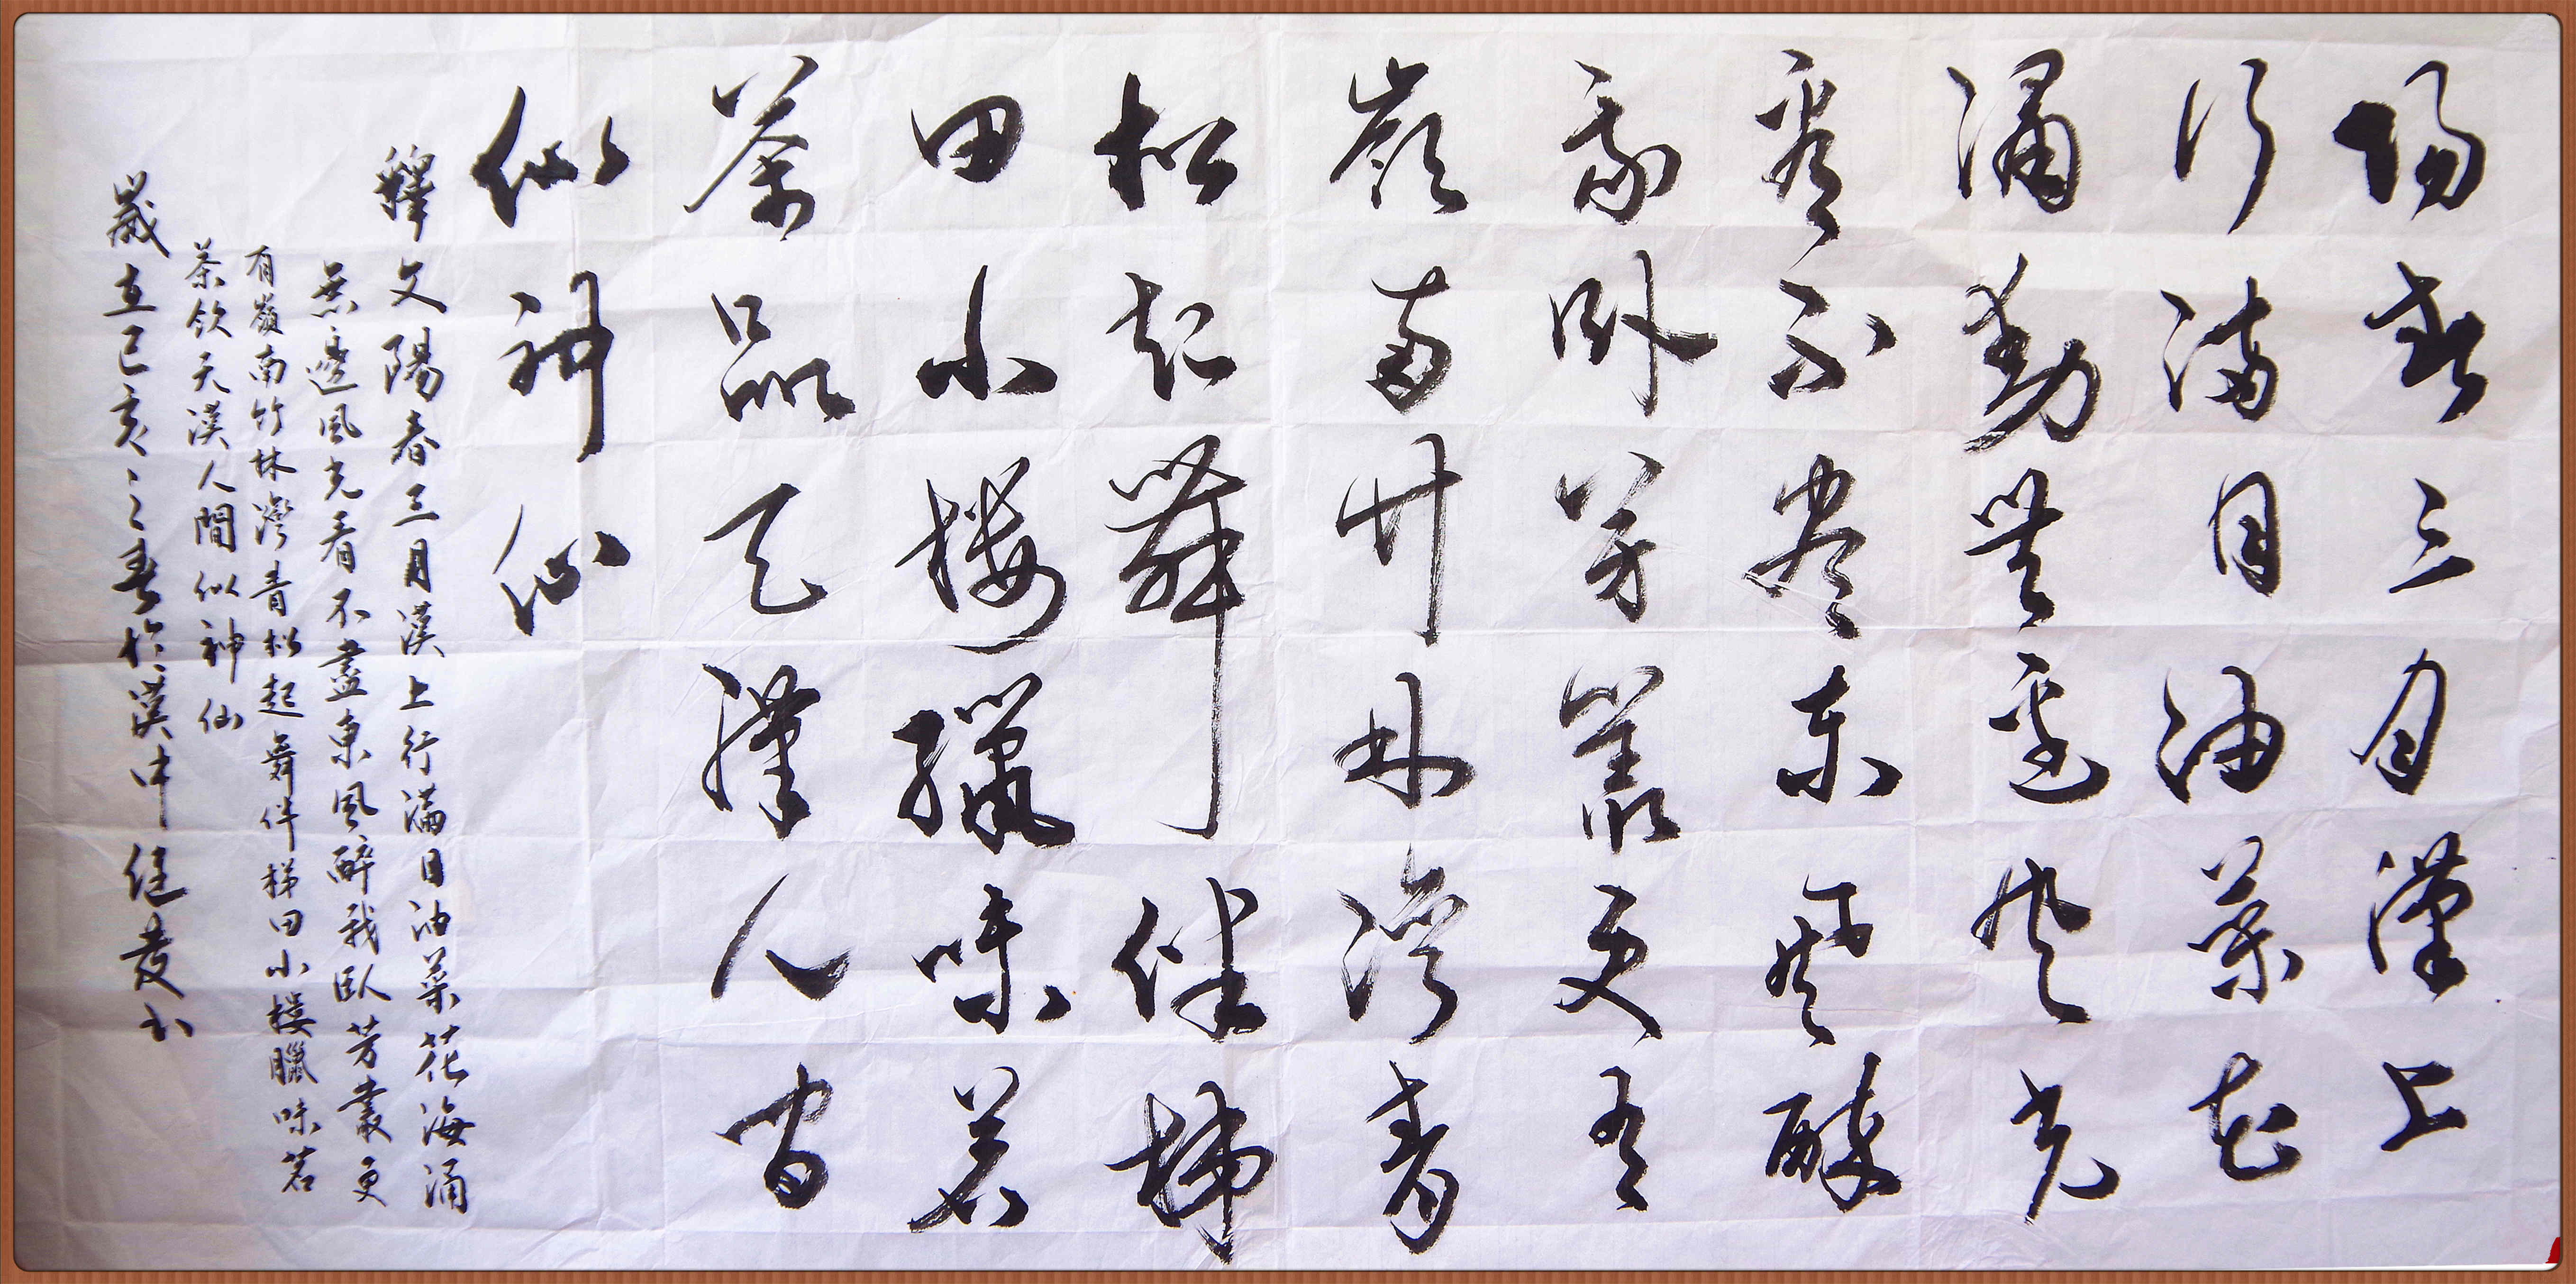 陽春三月漢上
行滿目油菜花
涌動無邊風光
看不盡東風醉
我臥芳叢更有
嶺南竹林灣青
松起舞伴梯
田小樓臘味茗
茶品天漢人間
似神仙
釋文陽春三月漢上行滿目油菜花海涌
無邊風光看不盡東風醉我臥芳叢更
有嶺南竹林灣青松起舞伴梯田小樓臘味茗
茶飲天漢人間似神仙
歲在己亥之春於漢中书